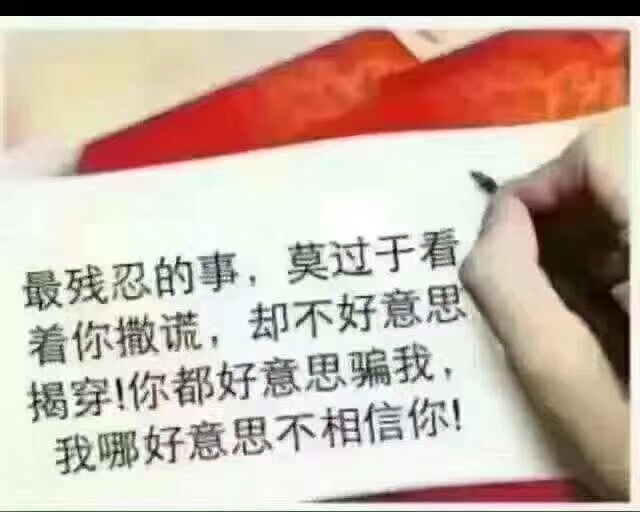 最残忍的事，莫过于看
着你撒谎，却不好意思
揭穿!你都好意思骗我，
我哪好意思不相信你!